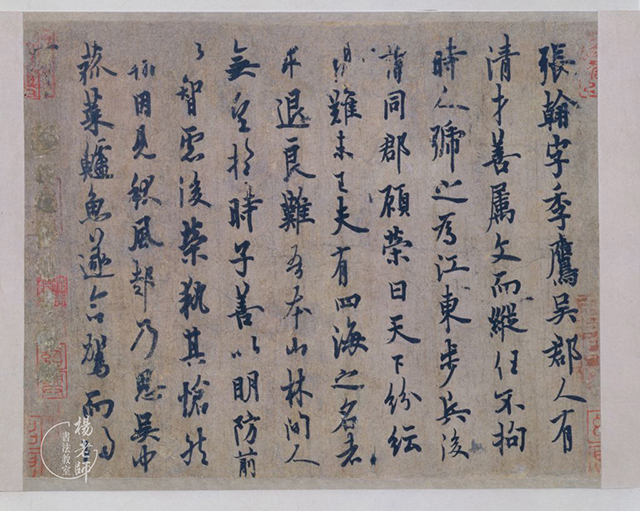 張翰字季鷹吳郡人有
清才善屬文而縱任不拘
時人號之為江東步兵後
謂同郡顧榮曰天下紛紜
禍難未已夫有四海之名者
求退良難吾本山林間人
無望於時子善以明防前
以智慮後榮執其愴然
翰因見秋風起乃思吳中
菰菜鱸魚遂命駕而歸
楊老師
書法教室